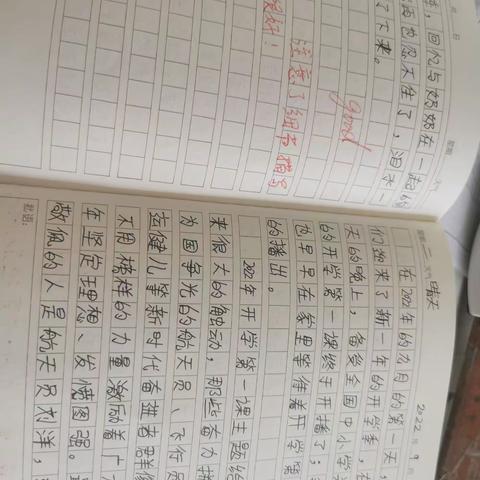 回忆与奶奶在一起的
再也忍不住了，泪水一
了下来。
good
注意了细节描写
很好！
2022 9
星期 二 天气 晴天
在2022年的九月的第一天，
们迎来了新一年的开学季，在
天的晚上，备受全国中小学
的开学第一课终于开播了；
也早早在家里等待着开学第
的播出。
2022年开学第一课主题给
来很大的触动，那些奋力拼
为国争光的航天员、飞行员
健儿擎新时代奋进者群像
不用榜样的力量激励着广
在坚定理想、发愤图强。
敬佩的人是航天员刘洋，
批语：